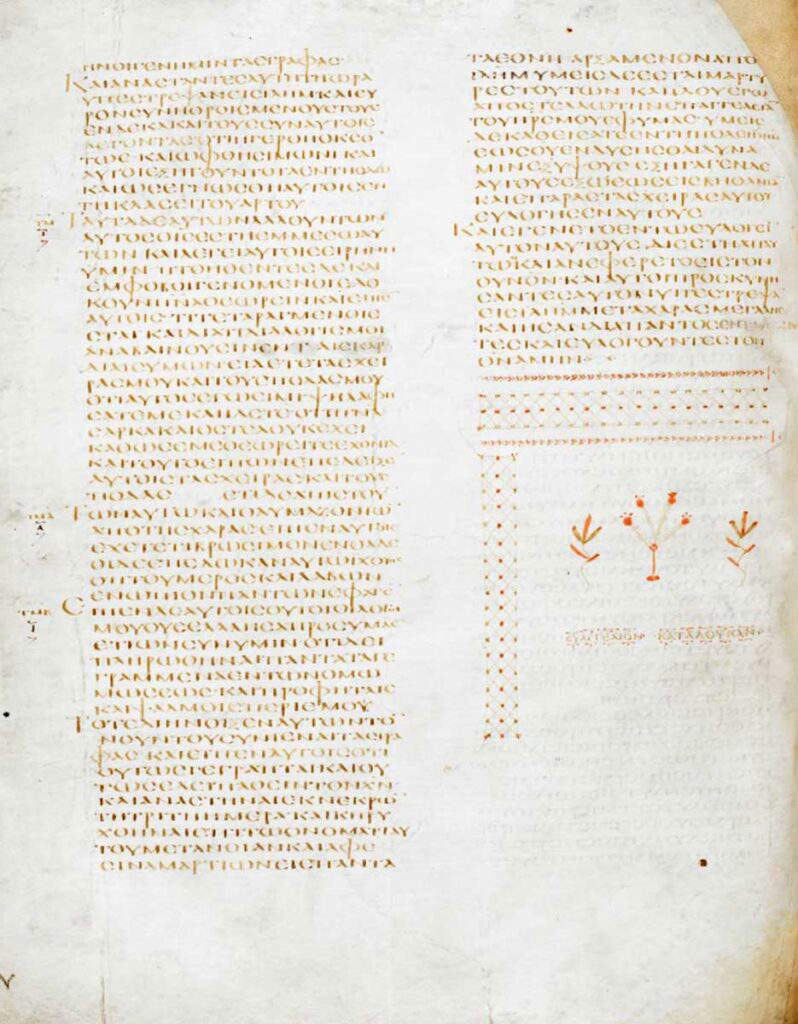 ΗΝΟΙΓΕΝΗΜΙΝΤΑϹΓΡΑΦΑϹ
ΚΑΙΑΝΑϹΤΑΝΤΕϹΑΥΤΗΤΗΩΡΑ
ΥΠΕϹΤΡΕΨΑΝΕΙϹΙΛΗΜΚΑΙΕΥ
ΡΟΝϹΥΝΗΘΡΟΙϹΜΕΝΟΥϹΤΟΥϹ
ΕΝΔΕΚΑΚΑΙΤΟΥϹϹΥΝΑΥΤΟΙϹ
ΛΕΓΟΝΤΑϹΟΤΙΗΓΕΡΘΗΟΚϹΟ
ΤΩϹΚΑΙΩΦΘΗϹΙΜΩΝΙΚΑΙ
ΑΥΤΟΙΕΞΗΓΟΥΝΤΟΤΑΕΝΤΗΟΔΩ
ΚΑΙΩϹΕΓΝΩϹΘΗΑΥΤΟΙϹΕΝ
ΤΗΚΛΑϹΕΙΤΟΥΑΡΤΟΥ
ΤΑΥΤΑΔΕΑΥΤΩΝΛΑΛΟΥΝΤΩΝ
ΑΥΤΟϹΟΙϹΕϹΤΗΕΜΜΕϹΩΑΥ
ΤΩΝΚΑΙΛΕΓΕΙΑΥΤΟΙϹΕΙΡΗΝΗ
ΥΜΙΝΠΤΟΗΘΕΝΤΕϹΔΕΚΑΙ
ΕΜΦΟΒΟΙΓΕΝΟΜΕΝΟΙΕΔΟ
ΚΟΥΝΠΝΑΘΕΩΡΕΙΝΚΑΙΕΙΠΕΝ
ΑΥΤΟΙϹΤΙΤΕΤΑΡΑΓΜΕΝΟΙ
ΕϹΤΑΙΚΑΙΔΙΑΤΙΔΙΑΛΟΓΙϹΜΟΙ
ΑΝΑΒΑΙΝΟΥϹΙΝΕΝΤΑΙϹΚΑΡ
ΔΙΑΙϹΥΜΩΝΕΙΔΕΤΕΤΑϹΧΕΙ
ΡΑϹΜΟΥΚΑΙΤΟΥϹΠΟΔΑϹΜΟΥ
ΟΤΙΑΥΤΟϹΕΓΩΕΙΜΙΨΗΛΑΦΗ
ϹΑΤΕΜΕΚΑΙΙΔΕΤΕΟΤΙΠΝΑ
ϹΑΡΚΑΚΑΙΟϹΤΕΑΟΥΚΕΧΕΙ
ΚΑΘΩϹΕΜΕΘΕΩΡΕΙΤΕΕΧΟΝΤΑ
ΚΑΙΤΟΥΤΟΕΙΠΩΝΕΠΕΔΕΙΞΕ
ΑΥΤΟΙϹΤΑϹΧΕΙΡΑϹΚΑΙΤΟΥϹ
ΠΟΔΑϹ ΕΤΙΔΕΑΠΙϹΤΟΥ
ΤΩΝΑΥΤΩΝΚΑΙΘΑΥΜΑΖΟΝΤΩ
ΑΠΟΤΗϹΧΑΡΑϹΕΙΠΕΝΑΥΤΟΙϹ
ΕΧΕΤΕΤΙΒΡΩϹΙΜΟΝΕΝΘΑΔΕ
ΟΙΔΕΕΠΕΔΩΚΑΝΑΥΤΩΙΧΘΥΟϹ
ΟΠΤΟΥΜΕΡΟϹΚΑΙΛΑΒΩΝ
ΕΝΩΠΙΟΝΠΑΝΤΩΝΕΦΑΓΕ
ΕΙΠΕΝΔΕΑΥΤΟΙϹΟΥΤΟΙΟΙΛΟΓΟΙ
ΜΟΥΟΥϹΕΛΑΛΗϹΑΠΡΟϹΥΜΑϹ
ΕΤΙΩΝϹΥΝΥΜΙΝΟΤΙΔΕΙ
ΠΛΗΡΩΘΗΝΑΙΠΑΝΤΑΤΑΓΕ
ΓΡΑΜΜΕΝΑΕΝΤΩΝΟΜΩ
ΜΩϹΕΩϹΚΑΙΠΡΟΦΗΤΑΙϹ
ΚΑΙΨΑΛΜΟΙϹΠΕΡΙΕΜΟΥ
ΤΟΤΕΔΙΗΝΟΙΞΕΝΑΥΤΩΝΤΟ
ΝΟΥΝΤΟΥϹΥΝΙΕΝΑΙΤΑϹΓΡΑ
ΦΑϹΚΑΙΕΙΠΕΝΑΥΤΟΙϹΟΤΙ
ΟΥΤΩϹΓΕΓΡΑΠΤΑΙΚΑΙΟΥ
ΤΩϹΕΔΕΙΠΑΘΕΙΝΤΟΝΧΝ
ΚΑΙΑΝΑϹΤΗΝΑΙΕΚΝΕΚΡΩ
ΤΗΤΡΙΤΗΗΜΕΡΑΚΑΙΚΗΡΥ
ΧΘΗΝΑΙΕΠΙΤΩΟΝΟΜΑΤΙΑΥ
ΤΟΥΜΕΤΑΝΟΙΑΝΚΑΙΑΦΕ
ϹΙΝΑΜΑΡΤΙΩΝΕΙϹΠΑΝΤΑ
ΤΑΕΘΝΗΑΡΞΑΜΕΝΟΝΑΠΟ
ΙΛΗΜΥΜΕΙϹΔΕΕϹΤΑΙΜΑΡΤΥ
ΡΕϹΤΟΥΤΩΝΚΑΙΙΔΟΥΕΓΩ
ΑΠΟϹΤΕΛΛΩΤΗΝΕΠΑΓΓΕΛΙΑ
ΤΟΥΠΡϹΜΟΥΕΦΥΜΑϹΥΜΕΙϹ
ΔΕΚΑΘΙϹΑΤΕΕΝΤΗΠΟΛΕΙ
ΕΩϹΟΥΕΝΔΥϹΗϹΘΑΙΔΥΝΑ
ΜΙΝΕΞΥΨΟΥϹΕΞΗΓΑΓΕΝΔΕ
ΑΥΤΟΥϹΕΞΩΕΩϹΕΙϹΒΗΘΑΝΙΑ
ΚΑΙΕΠΑΡΑϹΤΑϹΧΕΙΡΑϹΑΥΤΟΥ
ΕΥΛΟΓΗϹΕΝΑΥΤΟΥϹ
ΚΑΙΕΓΕΝΕΤΟΕΝΤΩΕΥΛΟΓΕΙ
ΑΥΤΟΝΑΥΤΟΥϹΔΙΕϹΤΗΑΠΑΥ
ΤΩΚΑΙΑΝΕΦΕΡΕΤΟΕΙϹΤΟΝ
ΟΥΝΟΝΚΑΙΑΥΤΟΙΠΡΟϹΚΥΝΗ
ϹΑΝΤΕϹΑΥΤΟΝΥΠΕϹΤΡΕΨΑ
ΕΙϹΙΛΗΜΜΕΤΑΧΑΡΑϹΜΕΓΑΛΗϹ
ΚΑΙΗϹΑΝΔΙΑΠΑΝΤΟϹΕΝ
ΤΕϹΚΑΙΕΥΛΟΓΟΥΝΤΕϹΤΟΝ
ΘΝΑΜΗΝ
ΕΥΑΓΓΕΛΙΟΝ ΚΑΤΑΛΟΥΚΑΝ